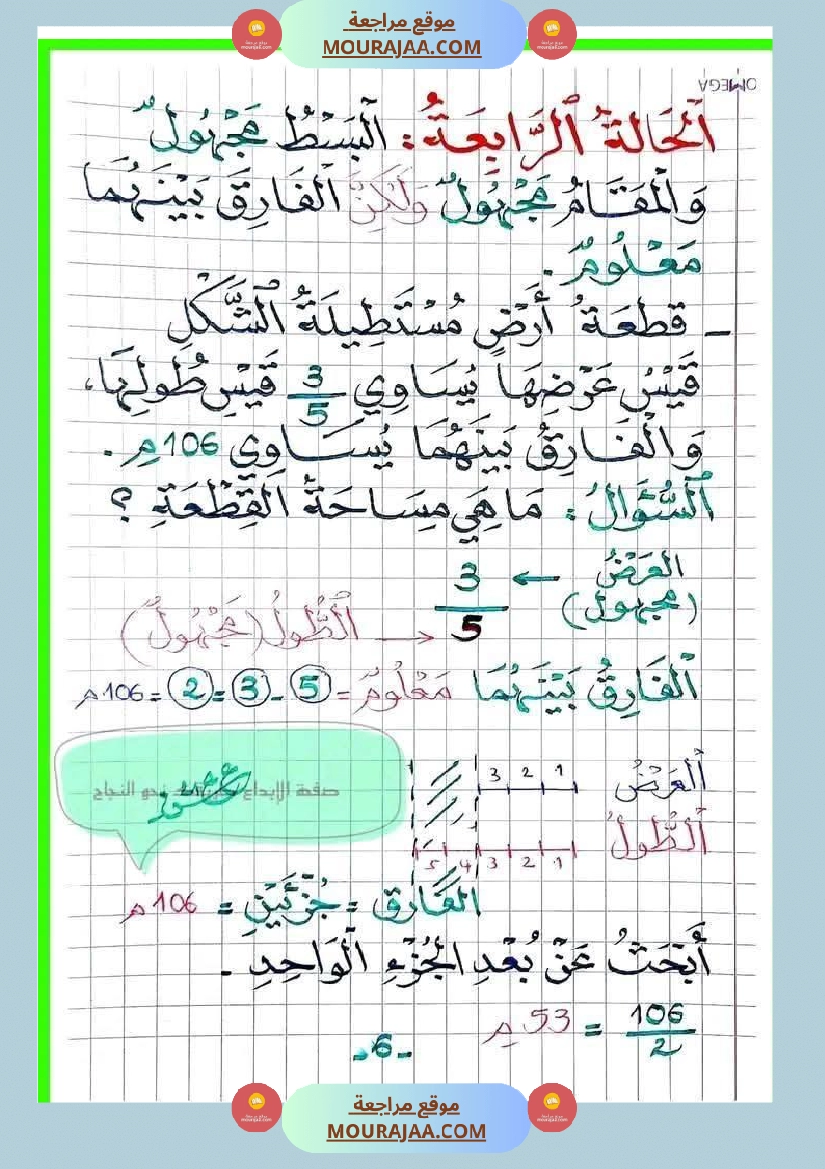 موقع مراجعة
MOURAJAA.COM
OMEGA
اَلْحَالَةُ اَلرَّابِعَةُ: اَلْبَسْطُ مَجْهُولٌ
وَالْمَقَامُ مَجْهُولٌ وَلَكِنَّ اَلْفَارِقَ بَيْنَهُمَا
مَعْلُومٌ.
- قِطْعَةُ أَرْضٍ مُسْتَطِيلَةُ اَلشَّكْلِ
قَيْسُ عَرْضِهَا يُسَاوِي 3/5 قَيْسِ طُولِهَا،
وَالْفَارِقُ بَيْنَهُمَا يُسَاوِي 106 م.
اَلسُّؤَالُ: مَا هِيَ مِسَاحَةُ اَلْقِطْعَةِ ؟
العَرْضُ ← 3
(مجهول)
5 ← اَلطُّولُ (مَجْهُولٌ)
اَلْفَارِقُ بَيْنَهُمَا مَعْلُومٌ = 5 - 3 = 2 = 106 م
اَلْعَرْضُ 1 2 3
صفحة الإبداع نحو النجاح
اَلطُّولُ 1 2 3 4 5
الفَارق = جُزْئَيْنِ = 106 م
أَبْحَثُ عَنْ بُعْدِ الْجُزْءِ اَلْوَاحِدِ.
106/2 = 53 م
-6-
موقع مراجعة
MOURAJAA.COM